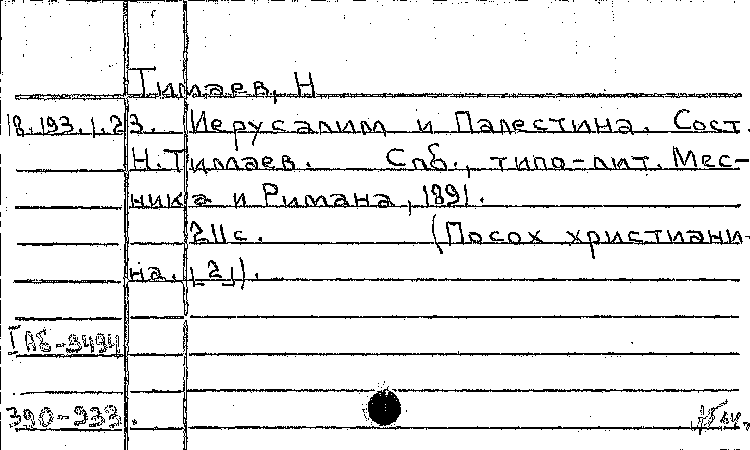 Тимаев, Н
18.193.1.23. Иерусалим и Палестина. Сост.
Н.Тимаев. Спб., типо-лит. Мес-
ника и Римана, 1891.
211с. (Посох христиани-
на. [2]).
ГПБ-9494
390-933.